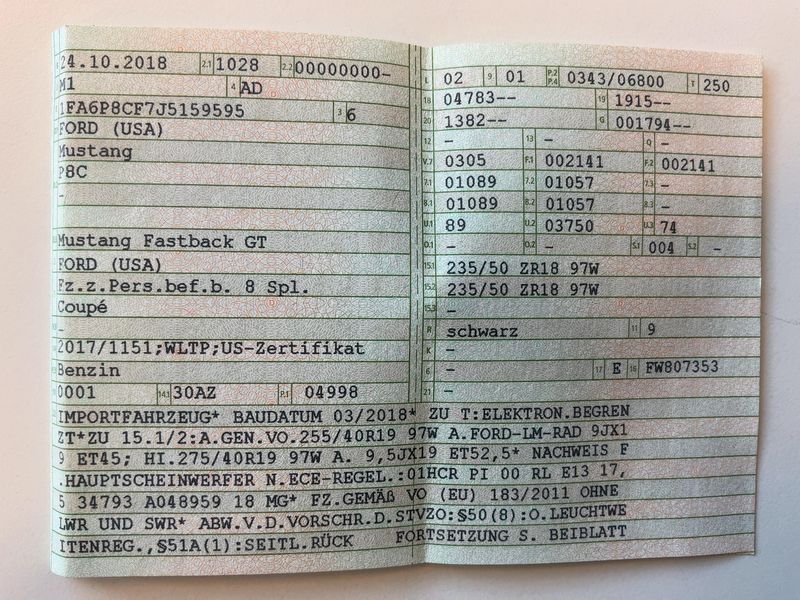 24.10.2018 2.1 1028 2.2 00000000-
M1 4 AD
1FA6P8CF7J5159595 3 6
FORD (USA)
Mustang
P8C
-
Mustang Fastback GT
FORD (USA)
Fz.z.Pers.bef.b. 8 Spl.
Coupé
-
2017/1151;WLTP;US-Zertifikat
Benzin
0001 14.1 30AZ P.1 04998
L 02 9 01 P.2 P.4 0343/06800 T 250
18 04783-- 19 1915--
20 1382-- G 001794--
12 - 13 - Q -
V.7 0305 F.1 002141 F.2 002141
7.1 01089 7.2 01057 7.3 -
8.1 01089 8.2 01057 8.3 -
U.1 89 U.2 03750 U.3 74
O.1 - O.2 - S.1 004 S.2 -
15.1 235/50 ZR18 97W
15.2 235/50 ZR18 97W
15.3 -
R schwarz 11 9
K -
6 - 17 E 16 FW807353
21 -
IMPORTFAHRZEUG* BAUDATUM 03/2018* ZU T:ELEKTRON.BEGREN
ZT*ZU 15.1/2:A.GEN.VO.255/40R19 97W A.FORD-LM-RAD 9JX1
9 ET45; HI.275/40R19 97W A. 9,5JX19 ET52,5* NACHWEIS F
.HAUPTSCHEINWERFER N.ECE-REGEL.:01HCR PI 00 RL E13 17,
5 34793 A048959 18 MG* FZ.GEMÄß VO (EU) 183/2011 OHNE
LWR UND SWR* ABW.V.D.VORSCHR.D.STVZO:§50(8):O.LEUCHTWE
ITENREG.,§51A(1):SEITL.RÜCK FORTSETZUNG S. BEIBLATT